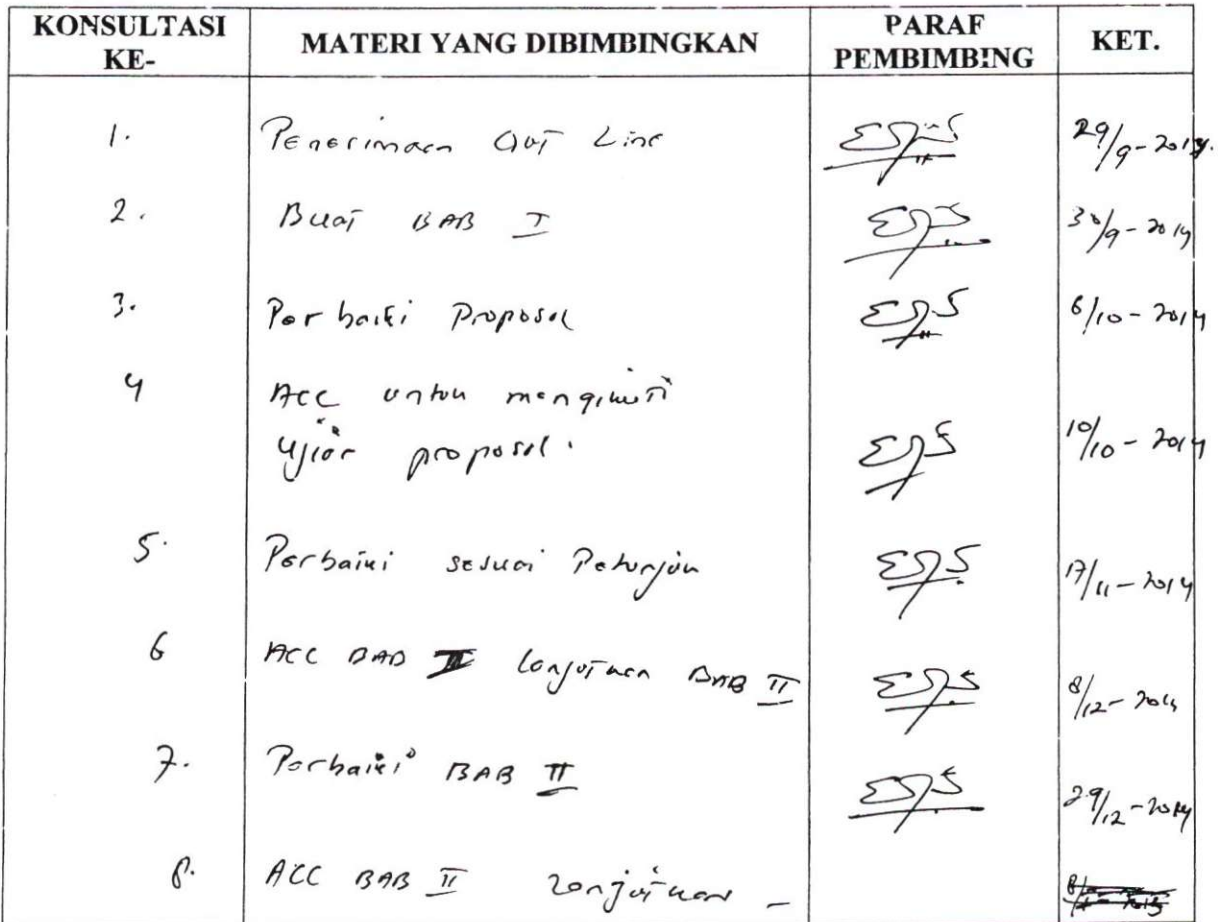 KONSULTASI KE- MATERI YANG DIBIMBINGKAN PARAF PEMBIMBING KET.
1. Penerimaan Out Line 29/9-2014.
2. Buat BAB I 30/9-2014
3. Perbaiki Proposal 6/10-2014
4 ACC untuk mengikuti
Ujian proposal. 10/10-2014
5. Perbaiki sesuai Petunjuk 17/11-2014
6 ACC BAB lanjutkan BAB II 8/12-2014
7. Perbaiki BAB II 29/12-2014
8. ACC BAB II lanjutkan -